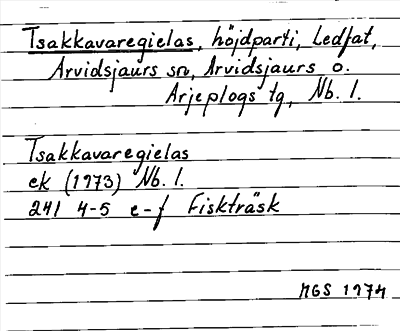 Tsakkavaregielas, höjdparti, Ledfat,
Arvidsjaurs sn, Arvidsjaurs o.
Arjeplogs tg, Nb. l.
Tsakkavaregielas
ek (1973) Nb. l.
241 4-5 e-f Fiskträsk
MGS 1974